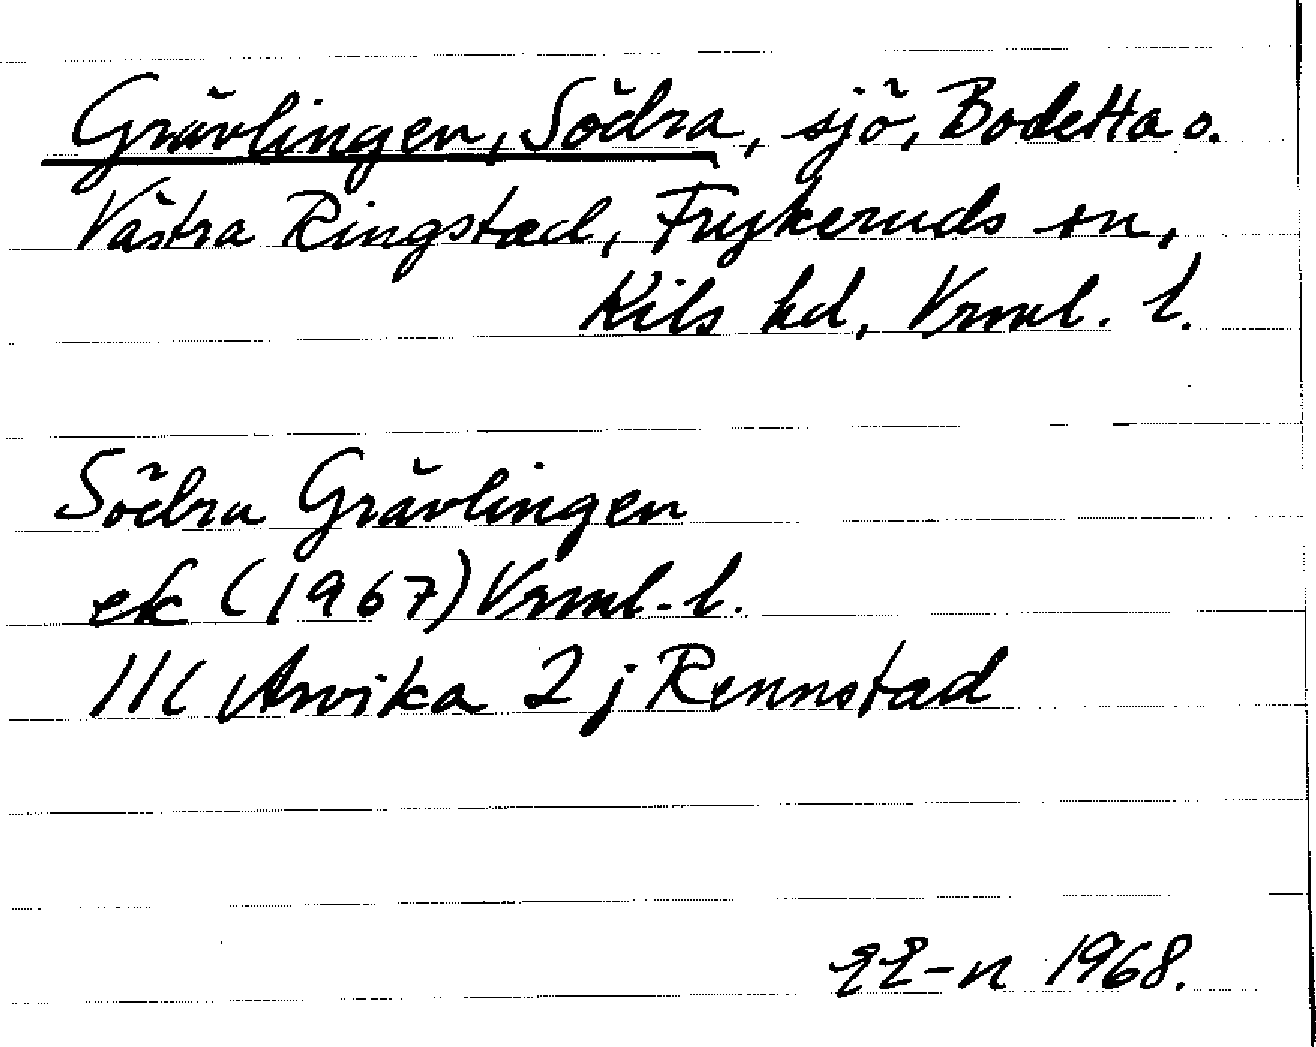 Grävlingen, Södra, sjö, Bodetta o.
Västra Ringstad, Frykeruds sn,
Kils hd, Vrml. l.
Södra Grävlingen
ek (1967) Vrml. l.
11C Arvika 2 j Rennstad
EE-n 1968.